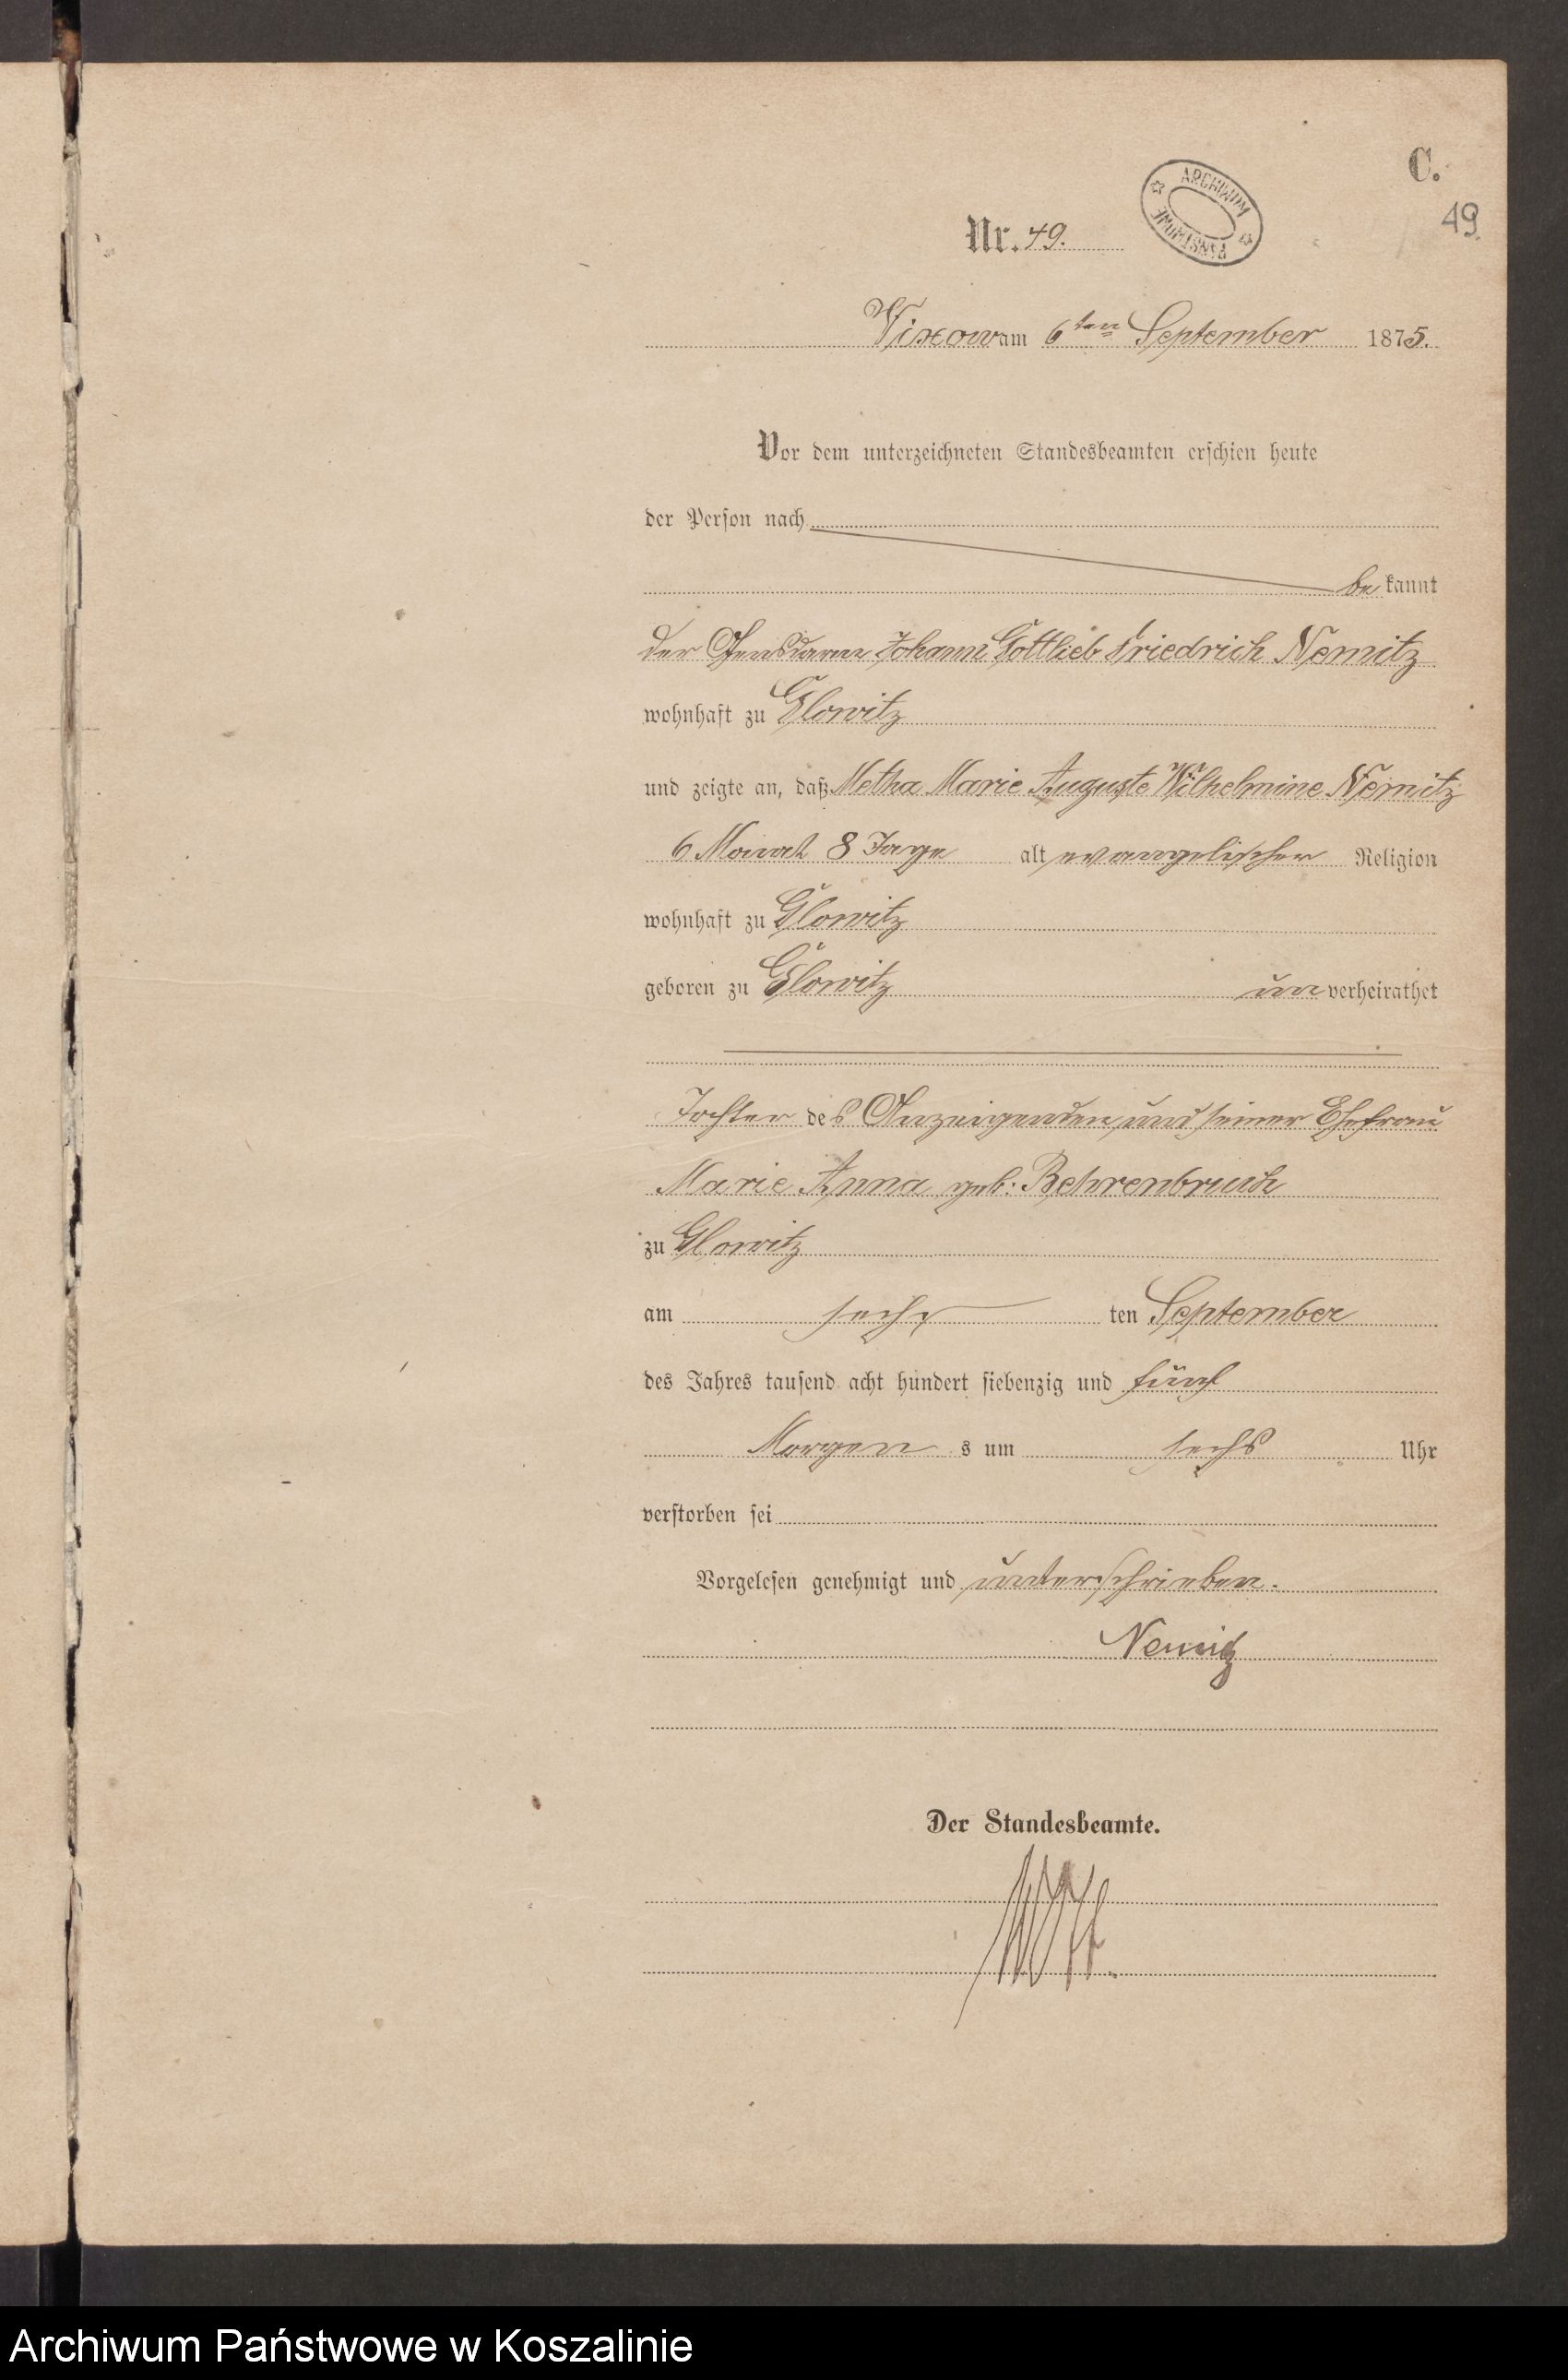 C.
49
ARCHIWUM PAŃSTWOWE
Nr. 49.
Vixow am 6ten September 1875.
Vor dem unterzeichneten Standesbeamten erschien heute
der Person nach
be kannt
der Gensdarm Johann Gottlieb Friedrich Nemitz
wohnhaft zu Glowitz
und zeigte an, daß Metha Marie Auguste Wilhelmine Nemitz
6 Monat 8 Tage alt evangelischer Religion
wohnhaft zu Glowitz
geboren zu Glowitz un verheirathet
Tochter des Anzeigenden und seiner Ehefrau
Marie Anna geb: Behrenbruch
zu Glowitz
am sechs ten September
des Jahres tausend acht hundert siebenzig und fünf
Morgen s um sechs Uhr
verstorben sei
Vorgelesen genehmigt und unterschrieben.
Nemitz
Der Standesbeamte.
Archiwum Państwowe w Koszalinie